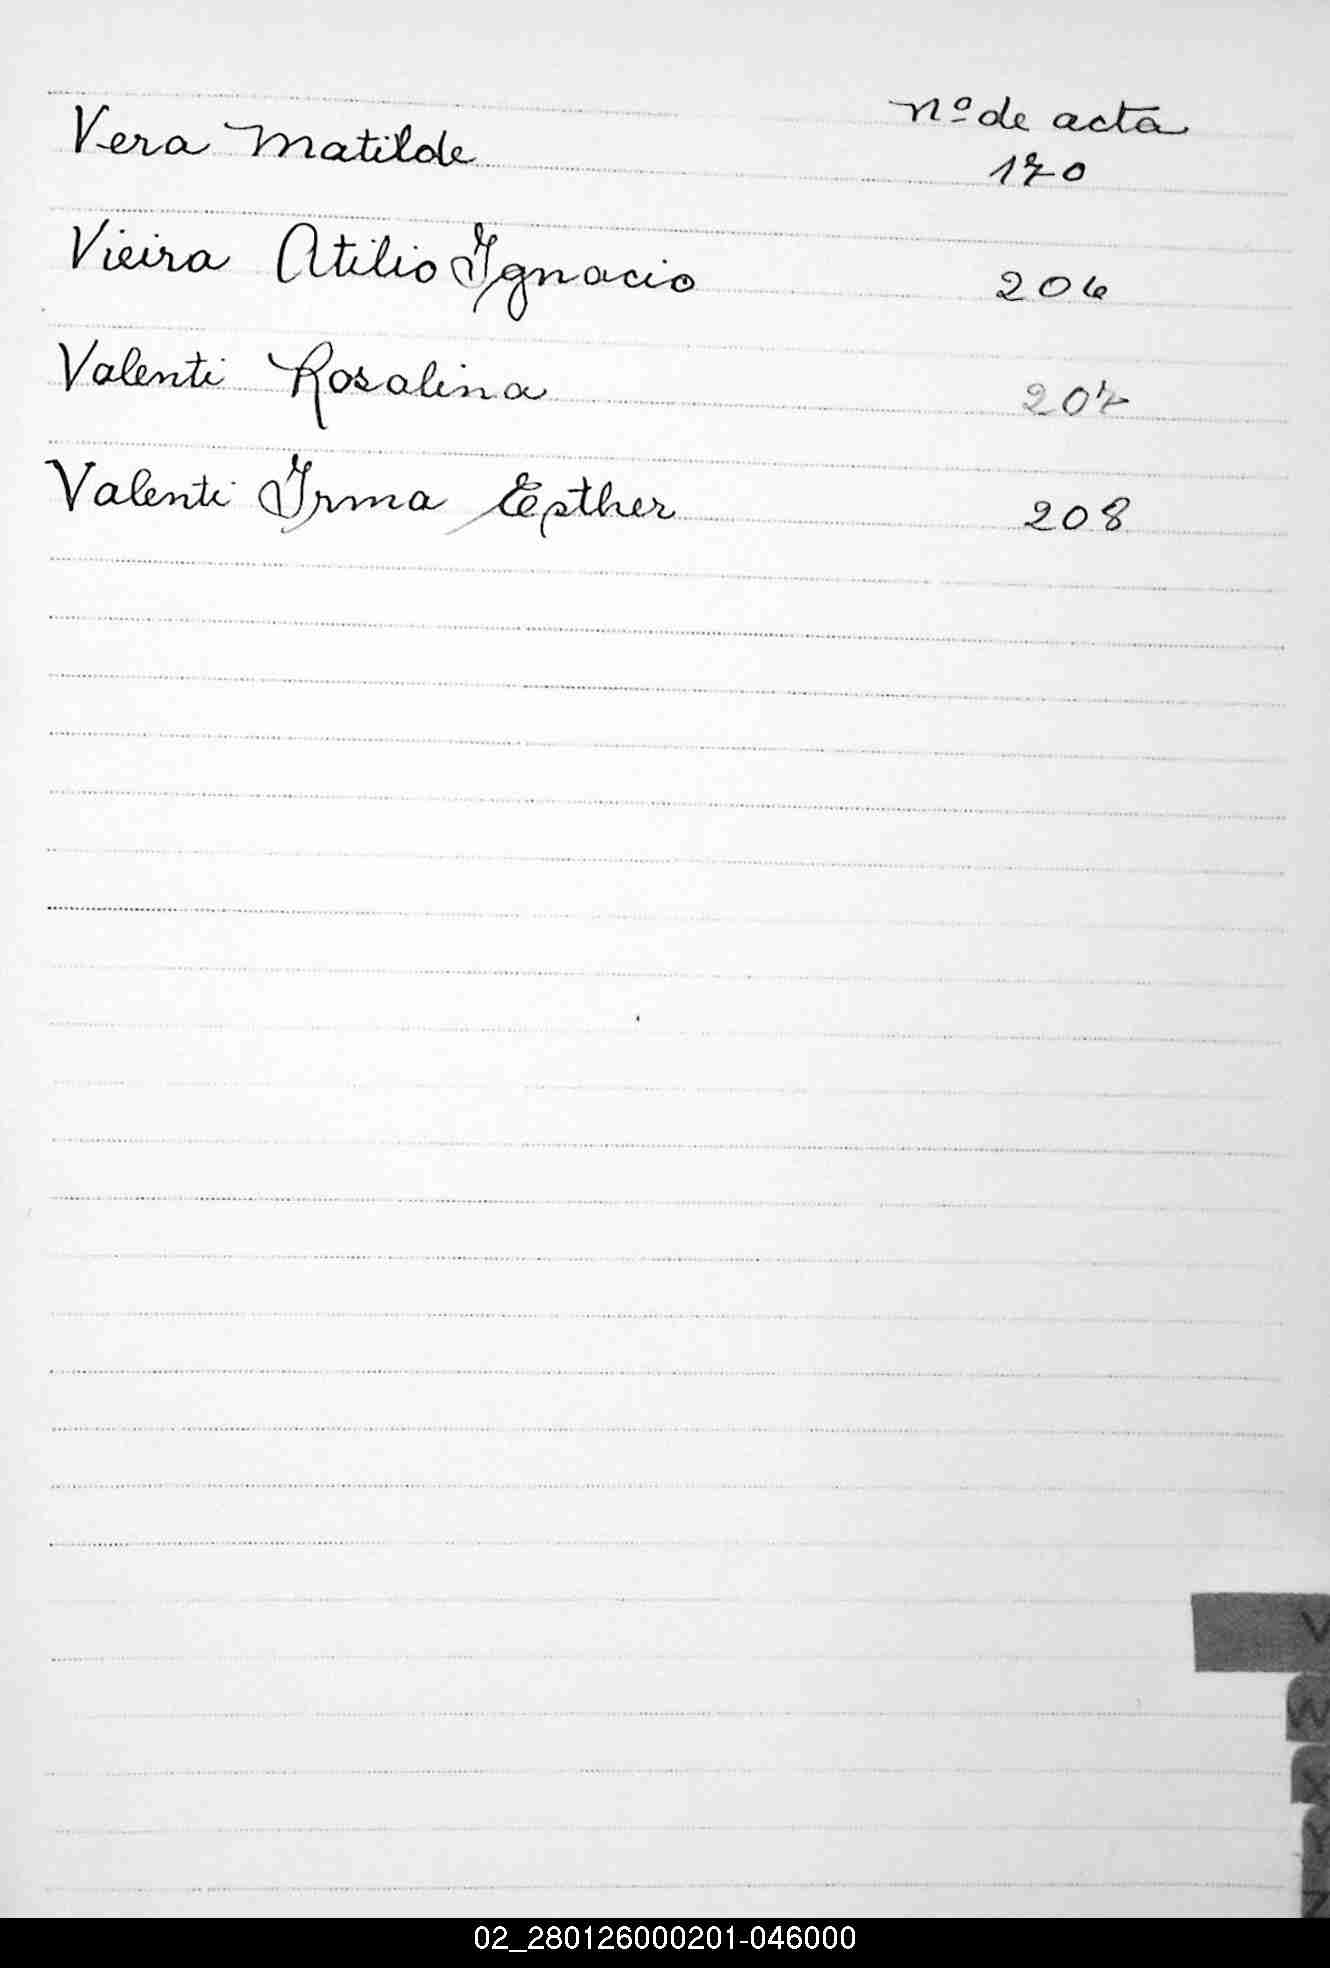 nº de acta
Vera Matilde 170
Vieira Atilio Ignacio 206
Valenti Rosalina 207
Valenti Irma Esther 208
V
W
X
Y
Z
02_280126000201-046000